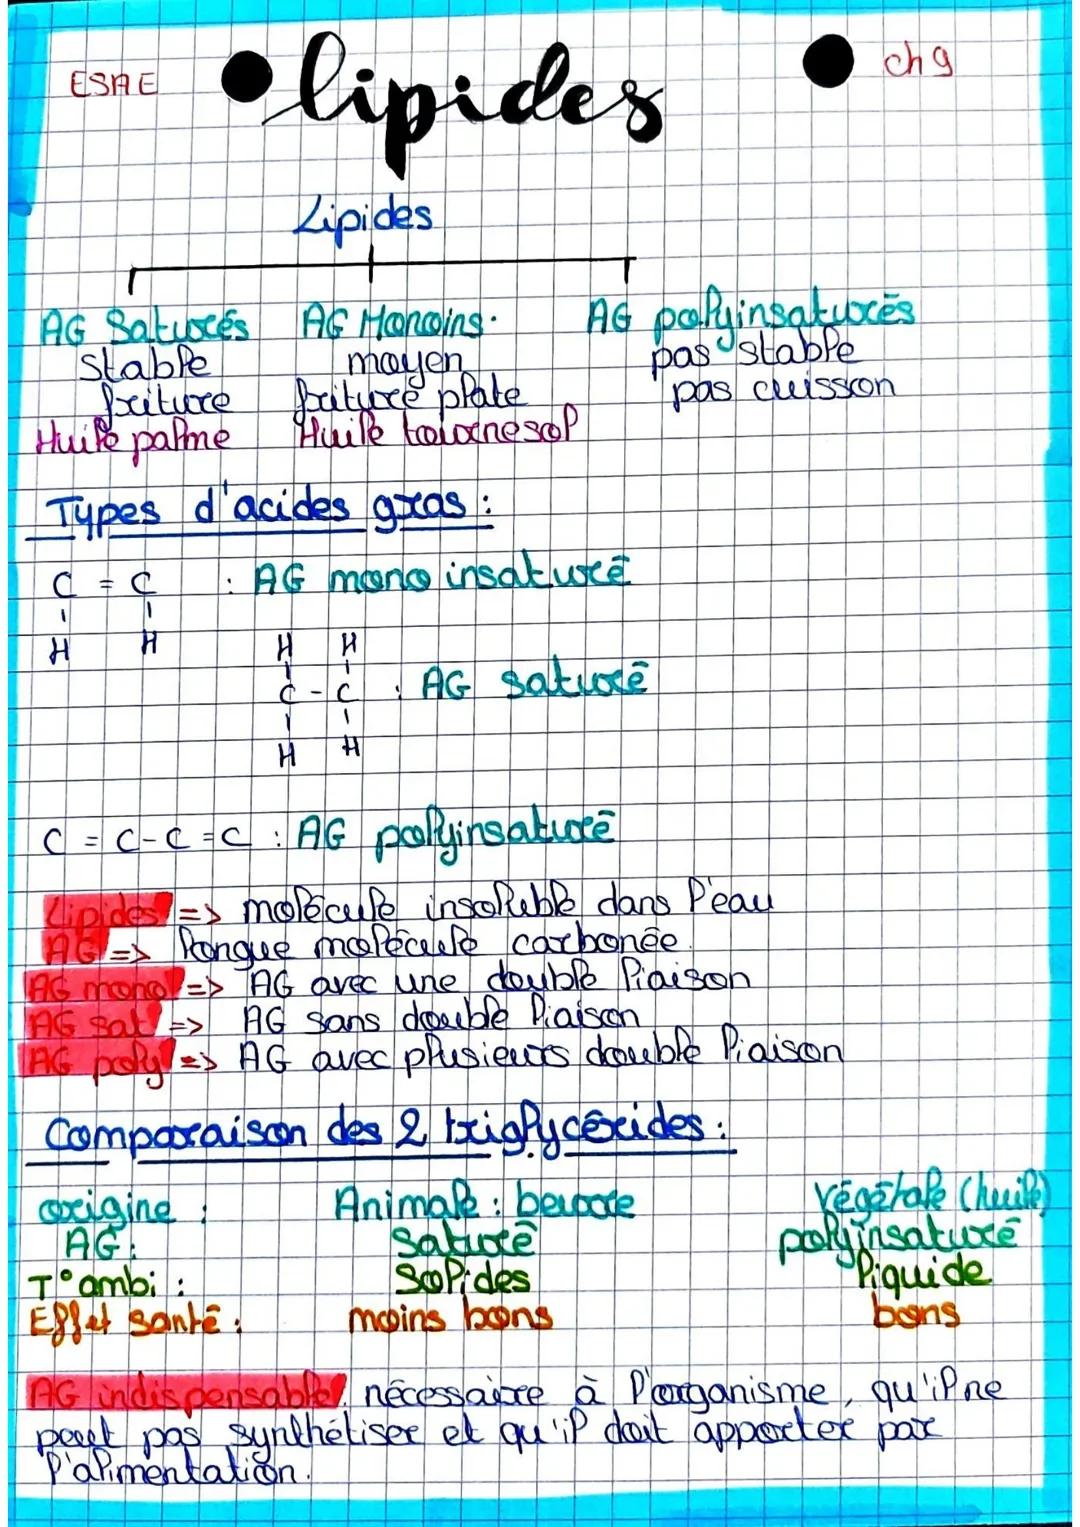 ESAE
• lipides •
ch 9
Lipides
AG Saturés AG Monoins. AG polyinsaturés
stable moyen pas stable
friture friture plate pas cuisson
Huile palme Huile tournesol
Types d'acides gras :
C = C : AG mono insaturé
H H
H H
C - C : AG saturé
H H
C = C - C = C : AG polyinsaturé
Lipides => molécule insoluble dans l'eau
AG => longue molécule carbonée.
AG mono => AG avec une double liaison
AG sat => AG sans double liaison
AG poly => AG avec plusieurs double liaison
Comparaison des 2 triglycérides :
origine : Animale : beurre Végétale (huile)
AG : saturé polyinsaturé
T° ambi : solides liquide
Effet santé : moins bons bons
AG indispensable : nécessaire à l'organisme, qu'il ne
peut pas synthétiser et qu'il doit apporter par
l'alimentation.